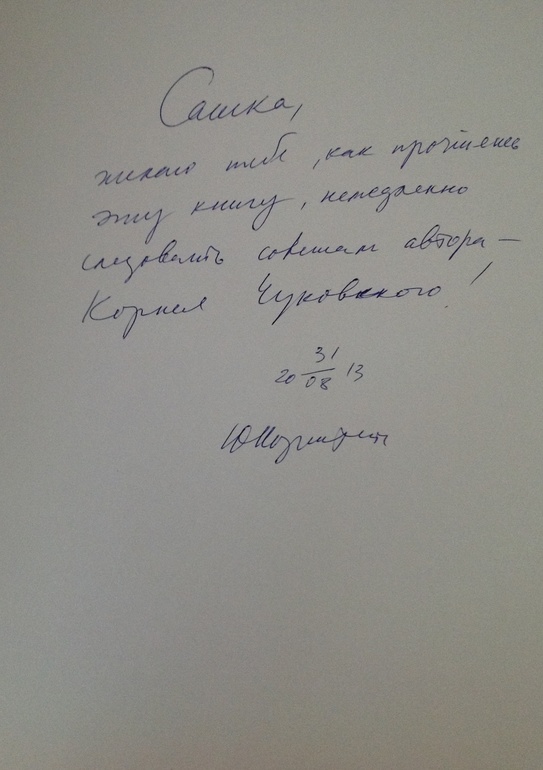 Сашка,
желаю тебе, как прочтёшь
эту книгу, немедленно
следовать советам автора –
Корнея Чуковского!
31
20 08 13